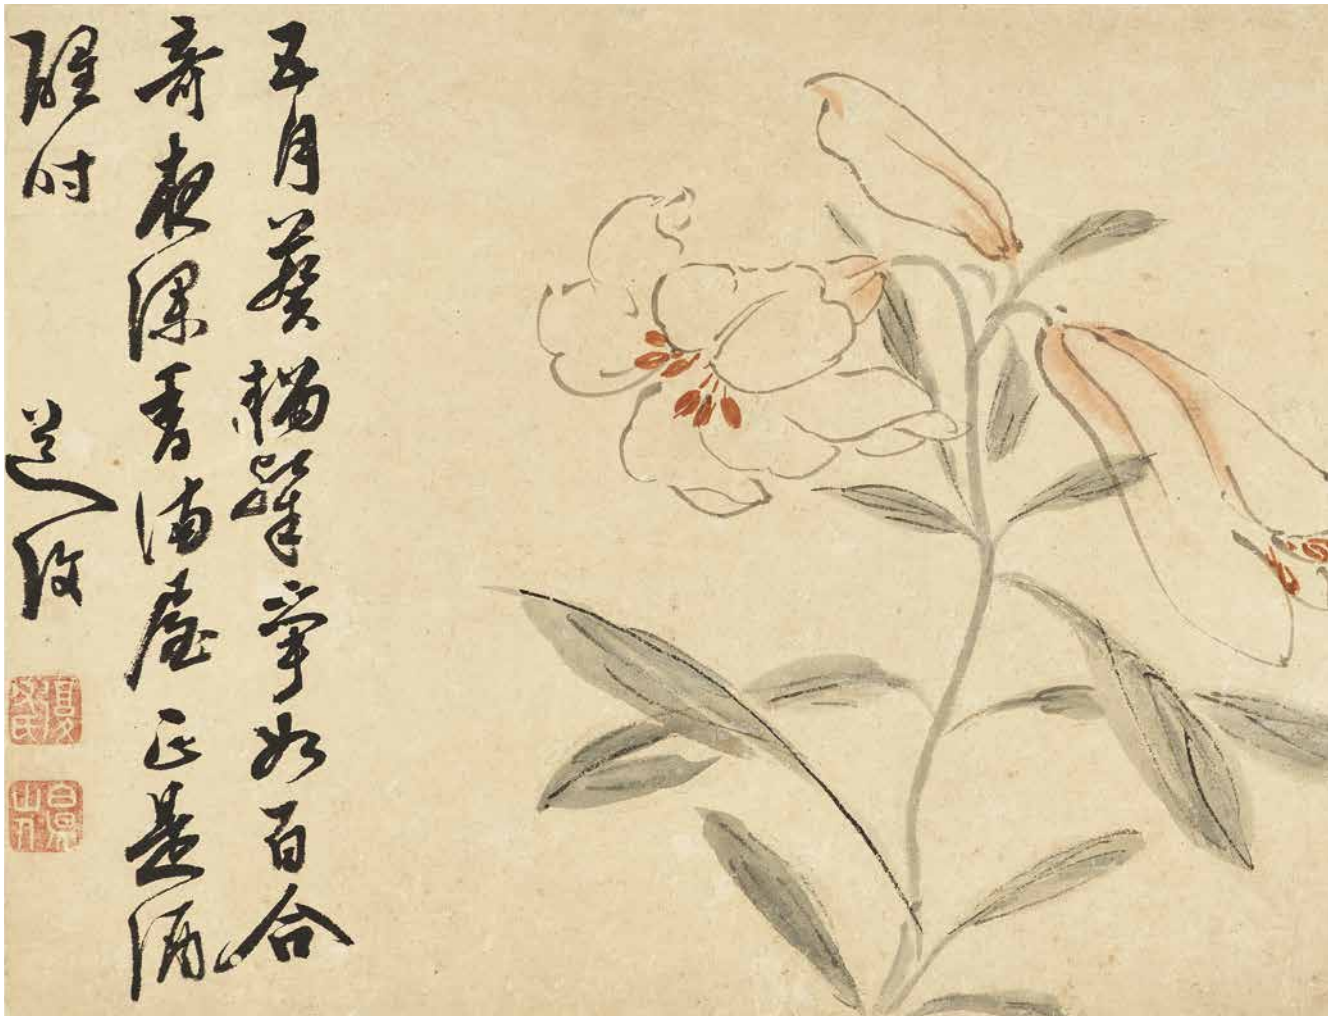 五月葵榴輩寧如百合
奇夜深香滿屋正是酒
醒時
道復
白陽山人